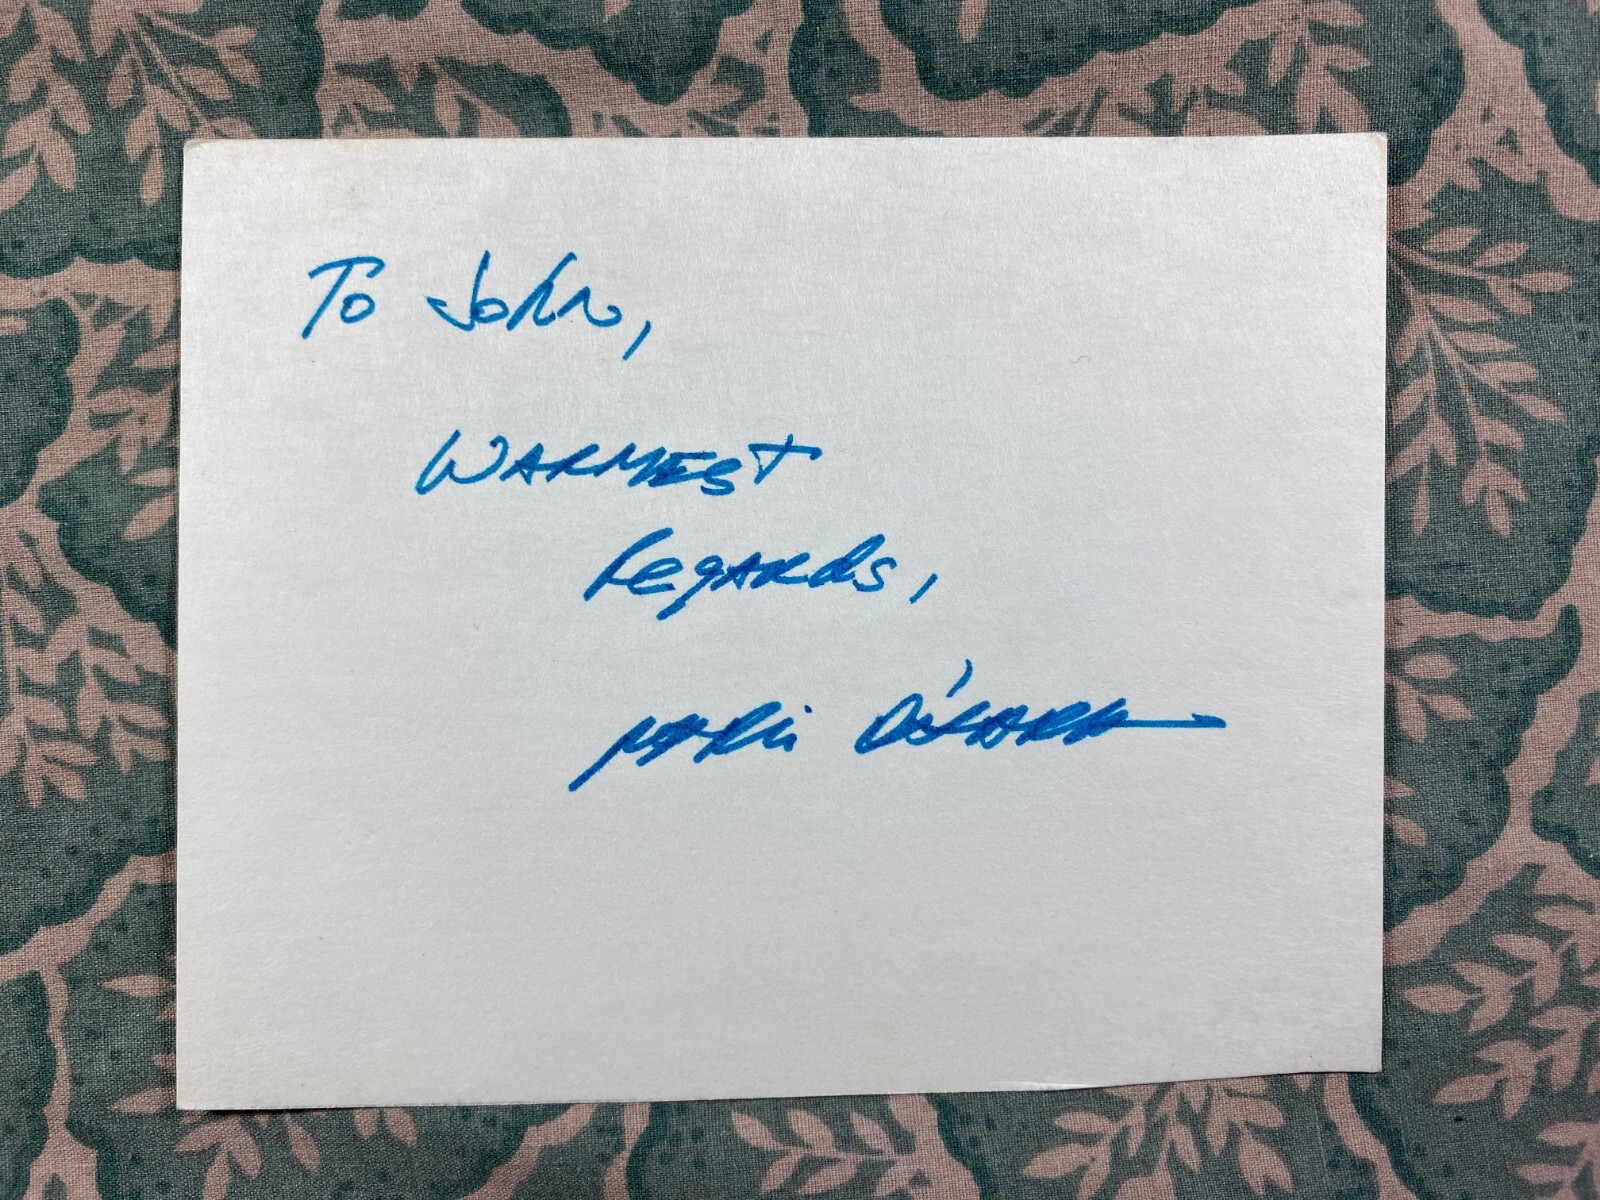 To John,
WARMEST
Regards,